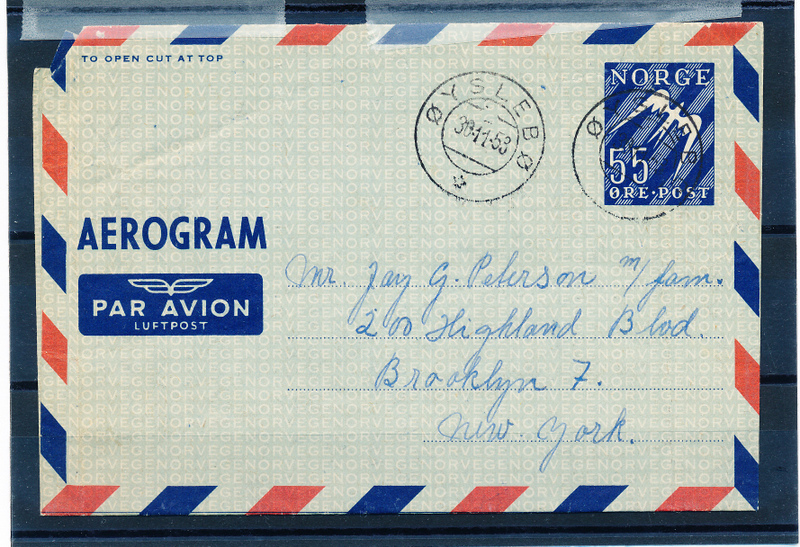 TO OPEN CUT AT TOP
NORGE
55
ØRE·POST
ØYSLEBØ
30-11-53
AEROGRAM
PAR AVION
LUFTPOST
Mr. Jay G. Peterson m/fam.
200 Highland Blvd.
Brooklyn 7.
New York.